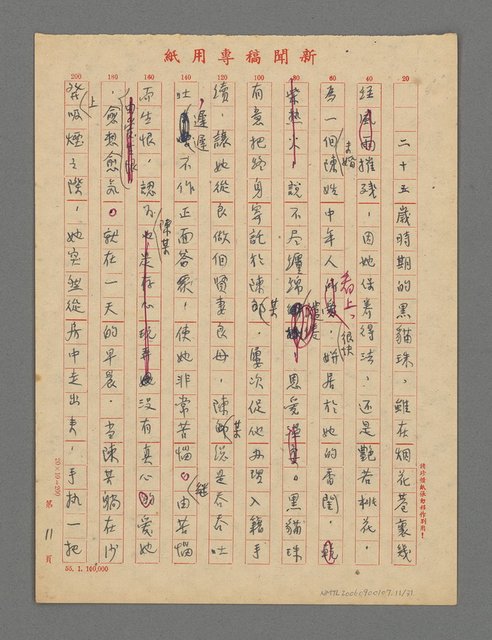 新聞稿專用紙
200 180 160 140 120 100 80 60 40 20
二十五歲時期的黑貓珠，雖在烟花巷裏幾
經風雨摧殘，因她保養得法，還是艷若桃花，
為一個未婚陳姓中年人看上，很快姘居於她的香閨，
說不尽纏綿繾綣恩愛。黑貓珠
有意把終身寄託於陳某，屢次促他办理入籍手
續，讓她從良做個賢妻良母，陳某總是吞吞吐
吐，遲遲不作正面答覆，使她非常苦惱。由苦惱
而生恨，認為陳某沒有真心的愛她
，愈想愈氣。就在一天的早晨，當陳某躺在沙
發上吸煙之際，她突然從房中走出來，手执一把
請珍惜紙張勿移作別用！
20×10=200
第 11 頁
55. 1. 100,000
NMTL20060900107.11/31